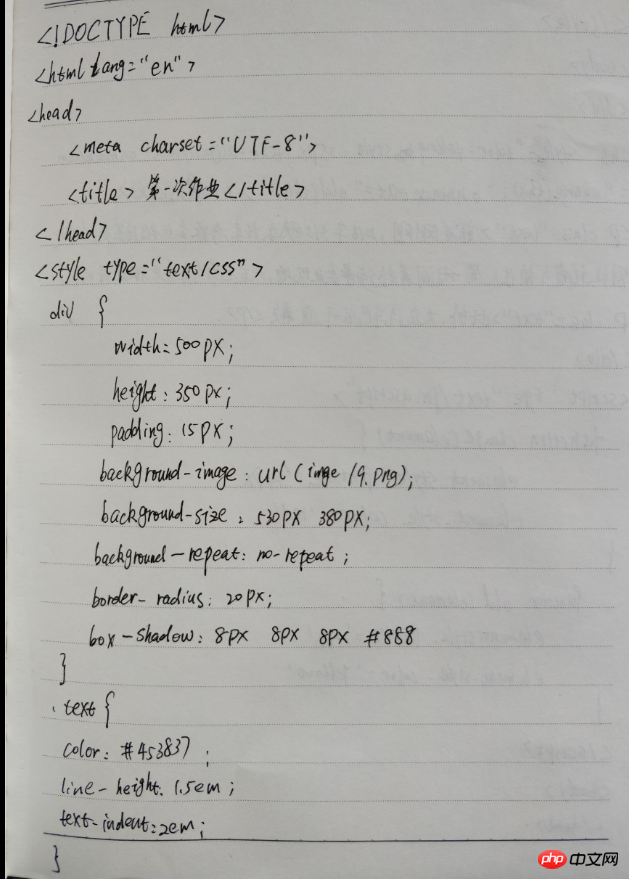 <!DOCTYPE html>
<html lang="en">
<head>
<meta charset="UTF-8">
<title>第一次作业</title>
</head>
<style type="text/css">
div {
width:500px;
height:350px;
padding:15px;
background-image:url(imge/9.png);
background-size:530px 380px;
background-repeat:no-repeat;
border-radius:20px;
box-shadow:8px 8px 8px #888
}
.text{
color:#453837;
line-height:1.5em;
text-indent:2em;
}
php中文网